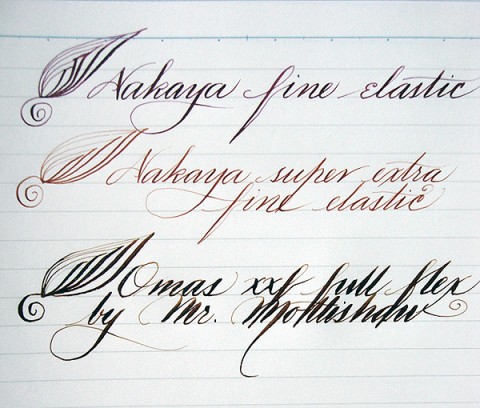 Nakaya fine elastic
Nakaya super extra
fine elastic
Omas xxf full flex
by Mr. Mottishaw